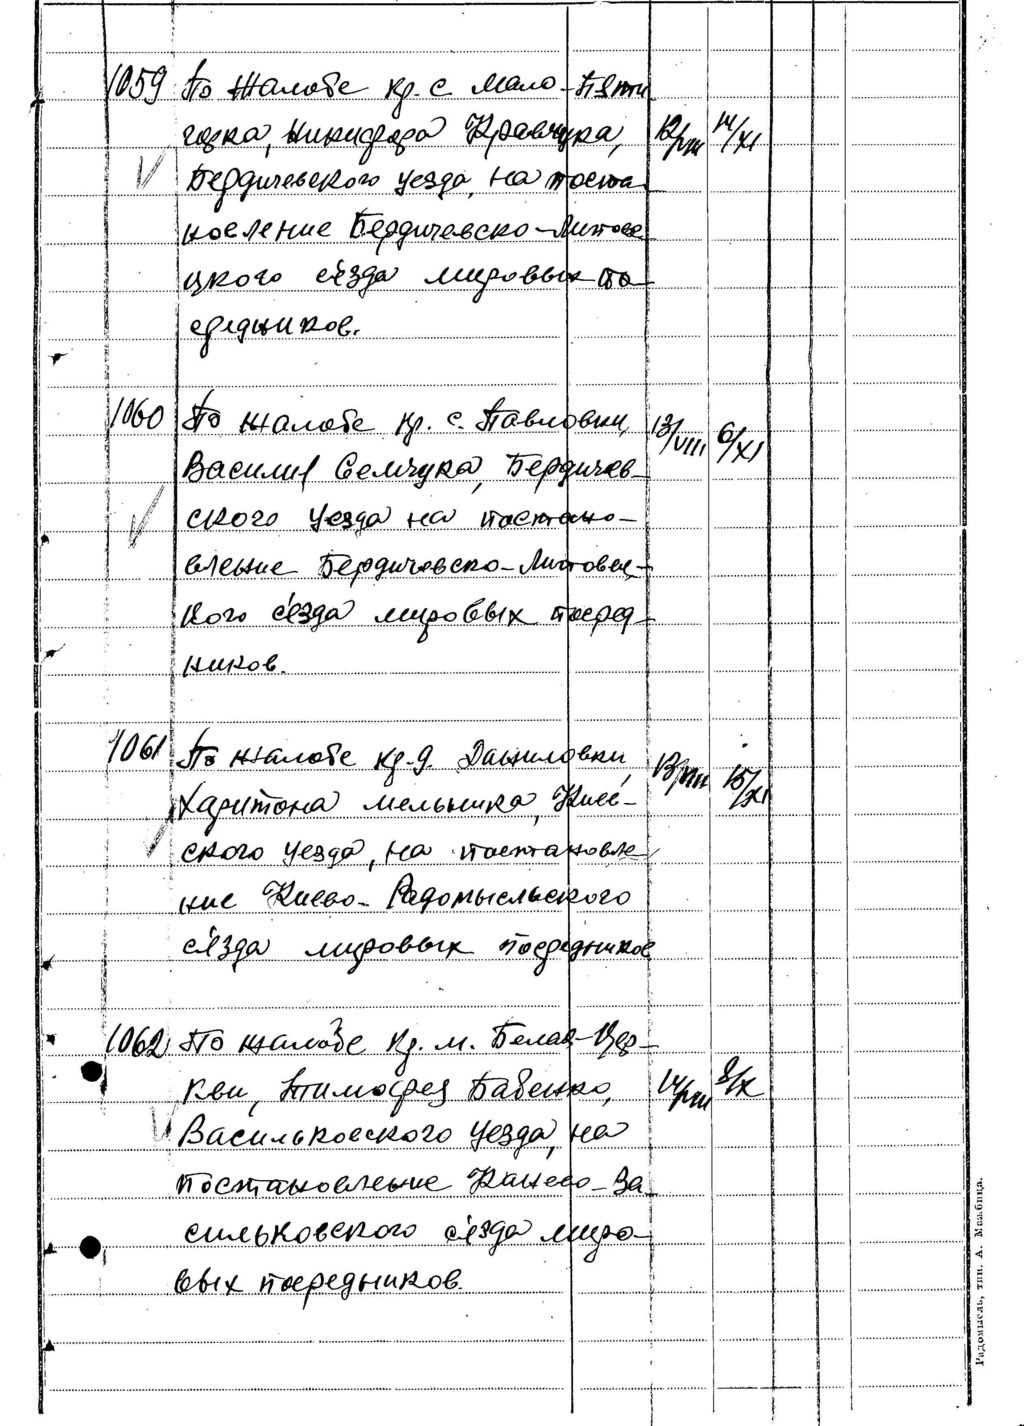 1059 По жалобе кр. с. Мало-Пяти
горка, Никифора Кравчука, 12/VIII 14/XI
Бердичевского уезда, на поста
новление Бердичевско-Липове
цкого с'езда мировых по
средников.
1060 По жалобе кр. с. Павловки, 13/VIII 6/XI
Василия Семчука, Бердичев-
ского уезда на постано-
вление Бердичевско-Липовец-
кого с'езда мировых посред-
ников.
1061 По жалобе кр. д. Даниловки, 13/VIII 15/XI
Харитона Мельника, Киев-
ского уезда, на постановле-
ние Киево-Радомысльского
с'езда мировых посредников
1062 По жалобе кр. м. Белая-Цер-
кви, Тимофея Бабенко, 14/VIII 8/X
Васильковского уезда, на
постановление Канево-Ва
сильковского с'езда миро-
вых посредников.
Радомысль, тип. А.